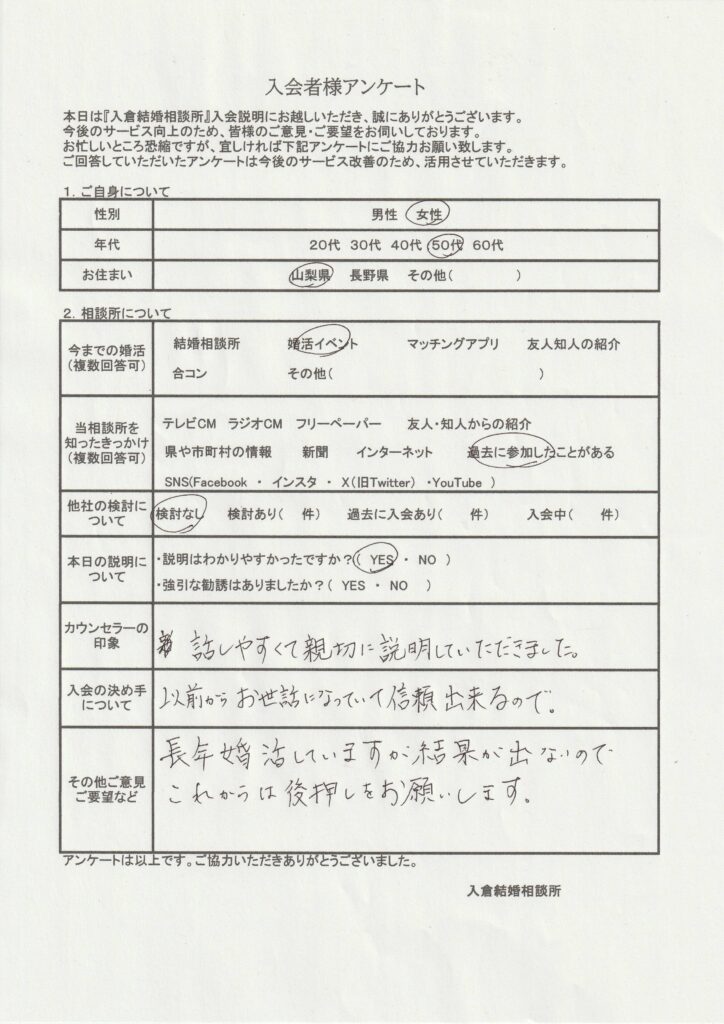 入会者様アンケート
本日は『入倉結婚相談所』入会説明にお越しいただき、誠にありがとうございます。
今後のサービス向上のため、皆様のご意見・ご要望をお伺いしております。
お忙しいところ恐縮ですが、宜しければ下記アンケートにご協力お願い致します。
ご回答していただいたアンケートは今後のサービス改善のため、活用させていただきます。
1. ご自身について
性別 男性 女性
年代 20代 30代 40代 50代 60代
お住まい 山梨県 長野県 その他( )
2. 相談所について
今までの婚活
(複数回答可)
結婚相談所 婚活イベント マッチングアプリ 友人知人の紹介
合コン その他( )
当相談所を
知ったきっかけ
(複数回答可)
テレビCM ラジオCM フリーペーパー 友人・知人からの紹介
県や市町村の情報 新聞 インターネット 過去に参加したことがある
SNS(Facebook ・ インスタ ・ X(旧Twitter) ・YouTube )
他社の検討に
ついて
検討なし 検討あり( 件) 過去に入会あり( 件) 入会中( 件)
本日の説明に
ついて
・説明はわかりやすかったですか?( YES ・ NO )
・強引な勧誘はありましたか?( YES ・ NO )
カウンセラーの
印象
話しやすくて親切に説明していただきました。
入会の決め手
について
以前からお世話になっていて信頼出来るので。
その他ご意見
ご要望など
長年婚活していますが結果が出ないので
これからは後押しをお願いします。
アンケートは以上です。ご協力いただきありがとうございました。
入倉結婚相談所